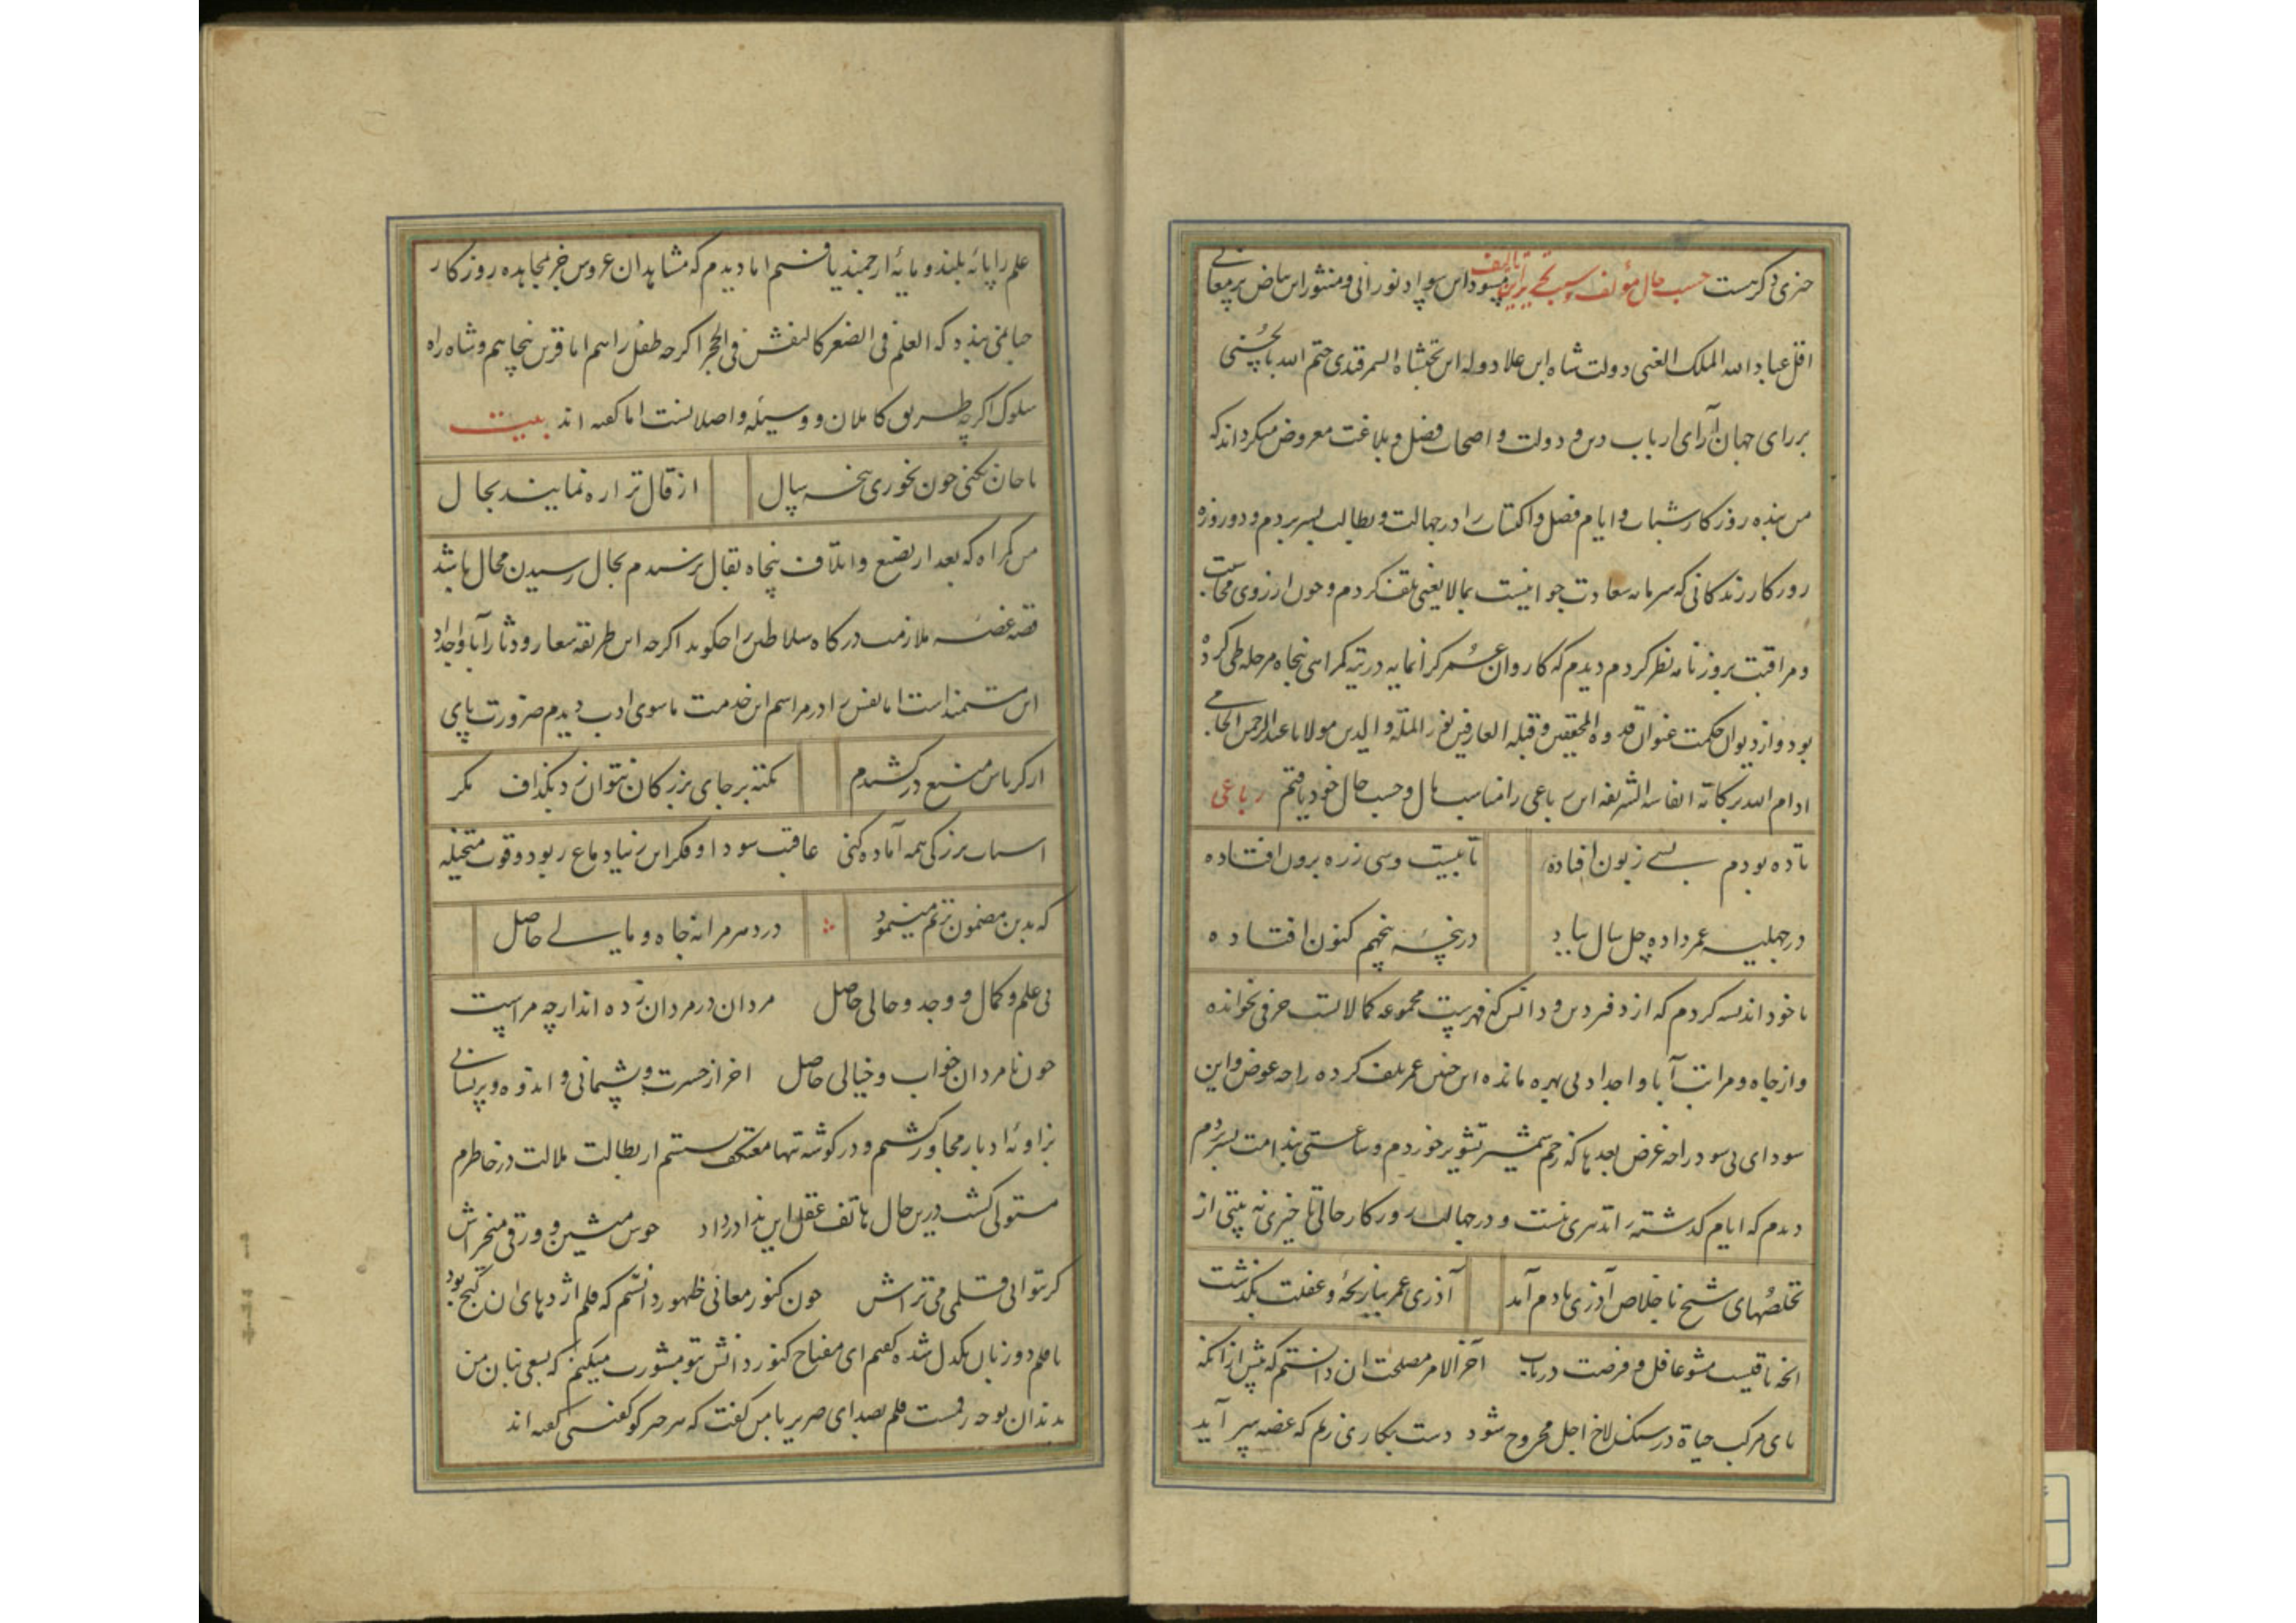 چیزی دکرست حسب حال مؤلف و سبب تحریر این تالیف مسود این سواد نورانی و منثور این بیاض پر معانی
اقل عباد الله الملک الغنی دولت شاه ابن علا دوله ابن بختیشاه السمرقندی ختم الله بالحسنی
بر رای جهان آرای ارباب دین و دولت و اصحاب فضل و بلاغت معروض میکرداند که
من بنده روزکار شباب و ایام فضل و اکتساب را در جهالت و بطالت بسر بردم و دو روزه
روزکار زندکانی که سرمایه سعادت جوانیست بمالایعنی تلف کردم و چون از روی محاسبت
و مراقبت بروزنامه نظر کردم دیدم که کاروان عمر کرانمایه در تیه کمراهی پنجاه مرحله طی کرده
بود و از دیوان حکمت عنوان قدوة المحققین و قبله العارفین فخر الملة و الدین مولانا عبدالرحمن الجامی
ادام الله برکاته انفاسه الشریفه این رباعی را مناسب حال و حسب حال خود یافتم رباعی
تا ده بودم بسے زبون افتاده تا بیست و سی ز ره برون افتاده
در چهلیه عمر داده چل سال بباد در پنجه پنجهم کنون افتاده
با خود اندیشه کردم که از دفتر دین و دانش که فهرست مجموعه کمالاتست حرفی نخوانده
و از جاه و مراتب آبا و اجداد بی بهره مانده این چنین عمر تلف کرده را چه عوض و این
سودای بی سود را چه غرض بعدها که زخم شمشیر تشویر خوردم و ساعتی بندامت بسر بردم
دیدم که ایام کذشته را تدبیری نیست و در جهالت روزکار حالی تاخیری نه بیتی از
تخلصهای شیخ با خلاص آذری یادم آمد آذری عمر ببازیچه و غفلت بکذشت
انچه باقیست مشو غافل و فرصت دریاب آخر الامر مصلحت ان دانستم که پیش از انکه
پای مرکب حیاة در سنکلاخ اجل مجروح شود دست بکاری زنم که غصه بسر آید
علم را پایۀ بلند و مایۀ ارجمند یافتم اما دیدم که مشاهدان عروس جز بمجاهده روزکار
حبالنی بنده که العلم فی الصغر کالنقش فی الحجر اکرچه طفل راهم اما قرین پنجاهم و شاه راه
سلوک اکرچه طریق کاملان و وسیله واصلانست اما کفته اند بیت
تا جان نکنی خون نخوری پنجه سال از قال ترا ره ننمایند بحال
من کمراه که بعد از تضییع و اتلاف پنجاه بقال نرسیدم بحال رسیدن محال باشد
قصه غصه ملازمت درکاه سلاطین را چکوید اکرچه این طریقه شعار و دثار آبا و اجداد
این مستمند است اما نفس را در مراسم این خدمت ناسوی ادب دیدم ضرورت پای
از کرباس منیع درکشیدم تکیه بر جای بزرکان نتوان زد بکزاف مکر
اسباب بزرکی همه آماده کنی عاقبت سودا و فکر این بنیاد دماغ ربود و قوت متخیله
که بدین مضمون ترنم مینمود در دهر مرا نه جاه و مالے حاصل
نی علم و کمال و وجد و حالی حاصل مردان در مردان زده اند ار چه مراست
چون نامردان خواب و خیالی حاصل اخر از حسرت و پشیمانی و اندوه و پریشانی
بزاوئه ادبار مجاور کشتم و در کوشه تنها معتکف نشستم از بطالت ملالت در خاطرم
مستولی کشت درین حال هاتف عقل این ندا در داد خوش منشین و ورقی میخراش
کر توانی قلمی می تراش چون کنوز معانی ظهور دانستم که قلم اژدهای ان کنج بود
با قلم دو زبان یکدل شده کفتم ای مفتاح کنوز دانش بتو مشورت میکنم که بسعی بنان من
بدندان تو چه رقمست قلم بصدای صریر با من کفت که هر چیز کو کفتنی کفته اند